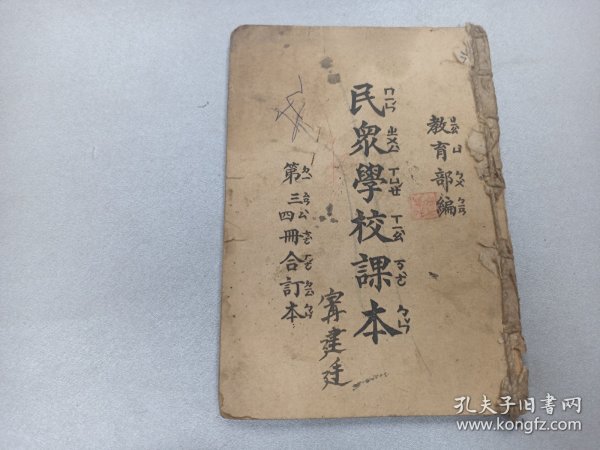 教育部編
民眾學校課本
第三四冊合訂本
甯建廷
孔夫子旧书网
www.kongfz.com